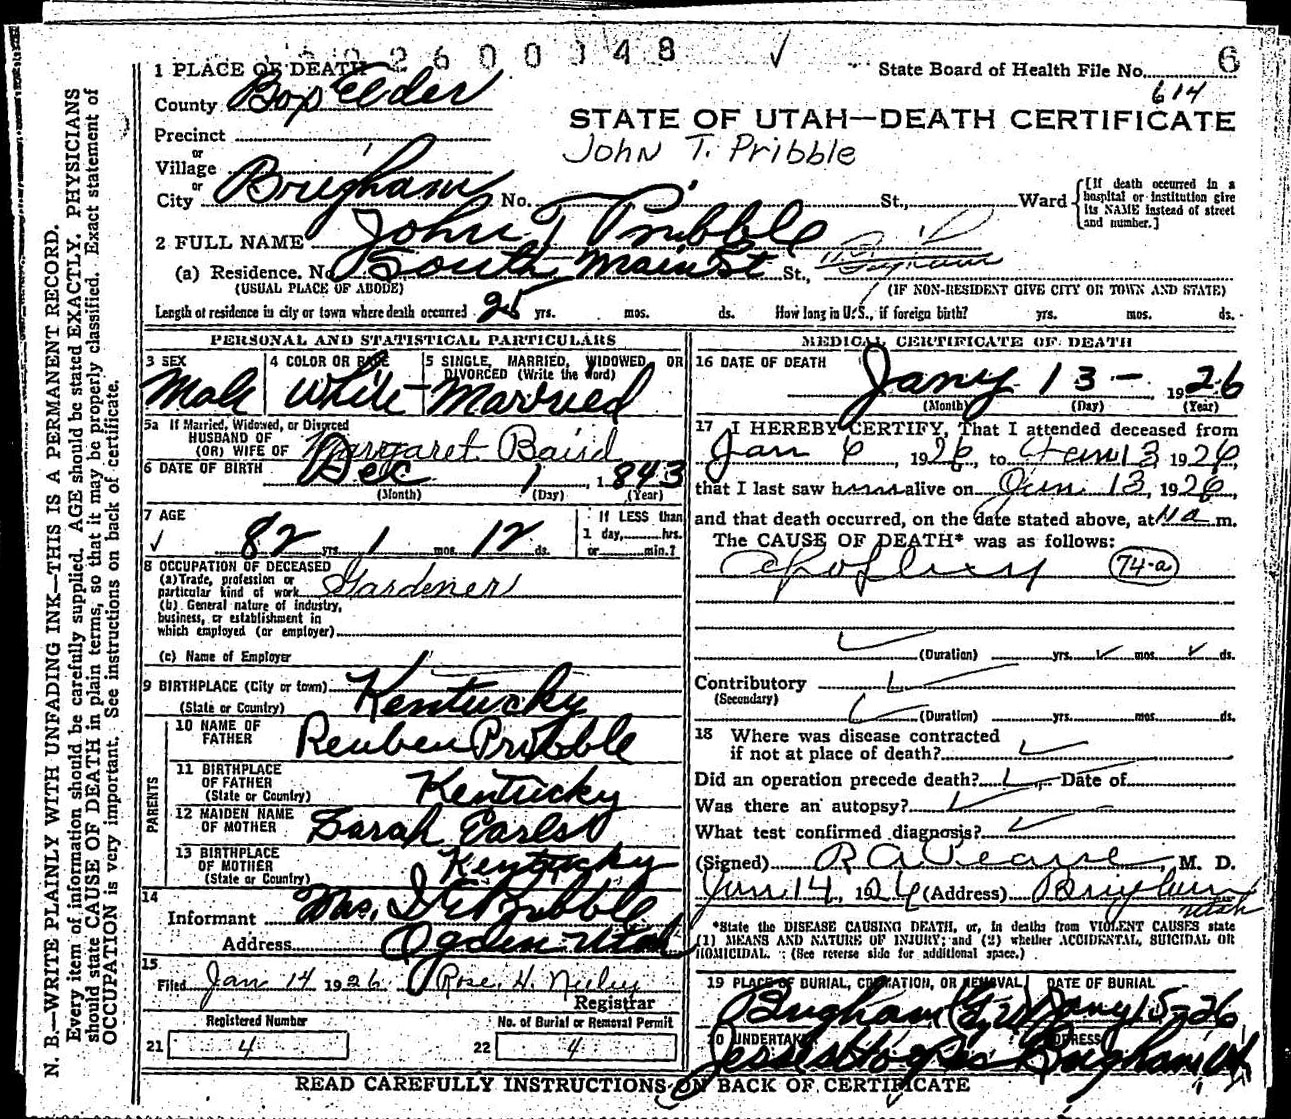 2600048 6
1 PLACE OF DEATH State Board of Health File No.
614
County Box Elder
STATE OF UTAH—DEATH CERTIFICATE
Precinct
John T. Pribble
or
Village
or
City Brigham No. St., Ward [If death occurred in a hospital or institution give its NAME instead of street and number.]
2 FULL NAME John T Pribble
(a) Residence. No. South Main St St.,
(USUAL PLACE OF ABODE) (IF NON-RESIDENT GIVE CITY OR TOWN AND STATE)
Length of residence in city or town where death occurred 25 yrs. mos. ds. How long in U.S., if foreign birth? yrs. mos. ds.
PERSONAL AND STATISTICAL PARTICULARS
3 SEX 4 COLOR OR RACE 5 SINGLE, MARRIED, WIDOWED, OR
DIVORCED (Write the word)
Male White Married
5a If Married, Widowed, or Divorced
HUSBAND OF
(OR) WIFE OF Margaret Baird
6 DATE OF BIRTH Dec 1, 1843
(Month) (Day) (Year)
7 AGE If LESS than
82 yrs. 1 mos. 12 ds. 1 day,......hrs.
or......min.?
8 OCCUPATION OF DECEASED
(a) Trade, profession or
particular kind of work Gardener
(b) General nature of industry,
business, or establishment in
which employed (or employer)
(c) Name of Employer
9 BIRTHPLACE (City or town)
(State or Country) Kentucky
PARENTS
10 NAME OF
FATHER Reuben Pribble
11 BIRTHPLACE
OF FATHER
(State or Country) Kentucky
12 MAIDEN NAME
OF MOTHER Sarah Earls
13 BIRTHPLACE
OF MOTHER
(State or Country) Kentucky
14
Informant Mrs. Pribble
Address Ogden Utah
15
Filed Jan 14 1926 Rose H.
Registrar
Registered Number No. of Burial or Removal Permit
21 4 22 4
MEDICAL CERTIFICATE OF DEATH
16 DATE OF DEATH
Jany 13 – 1926
(Month) (Day) (Year)
17 I HEREBY CERTIFY, That I attended deceased from
Jan 6, 1926, to Jan 13, 1926,
that I last saw him alive on Jan 13, 1926,
and that death occurred, on the date stated above, at m.
The CAUSE OF DEATH* was as follows:
Apoplexy 74-a
(Duration) yrs. mos. ds.
Contributory
(Secondary)
(Duration) yrs. mos. ds.
18 Where was disease contracted
if not at place of death?
Did an operation precede death? Date of
Was there an autopsy?
What test confirmed diagnosis?
(Signed) R A Pearse, M. D.
Jan 14, 1926 (Address) Brigham
Utah
*State the DISEASE CAUSING DEATH, or, in deaths from VIOLENT CAUSES state
(1) MEANS AND NATURE OF INJURY; and (2) whether ACCIDENTAL, SUICIDAL OR
HOMICIDAL. (See reverse side for additional space.)
19 PLACE OF BURIAL, CREMATION, OR REMOVAL DATE OF BURIAL
Brigham City Jany 15-26
20 UNDERTAKER ADDRESS
Brigham Ut
READ CAREFULLY INSTRUCTIONS ON BACK OF CERTIFICATE
N. B.—WRITE PLAINLY WITH UNFADING INK—THIS IS A PERMANENT RECORD.
Every item of information should be carefully supplied. AGE should be stated EXACTLY. PHYSICIANS
should state CAUSE OF DEATH in plain terms, so that it may be properly classified. Exact statement of
OCCUPATION is very important. See instructions on back of certificate.